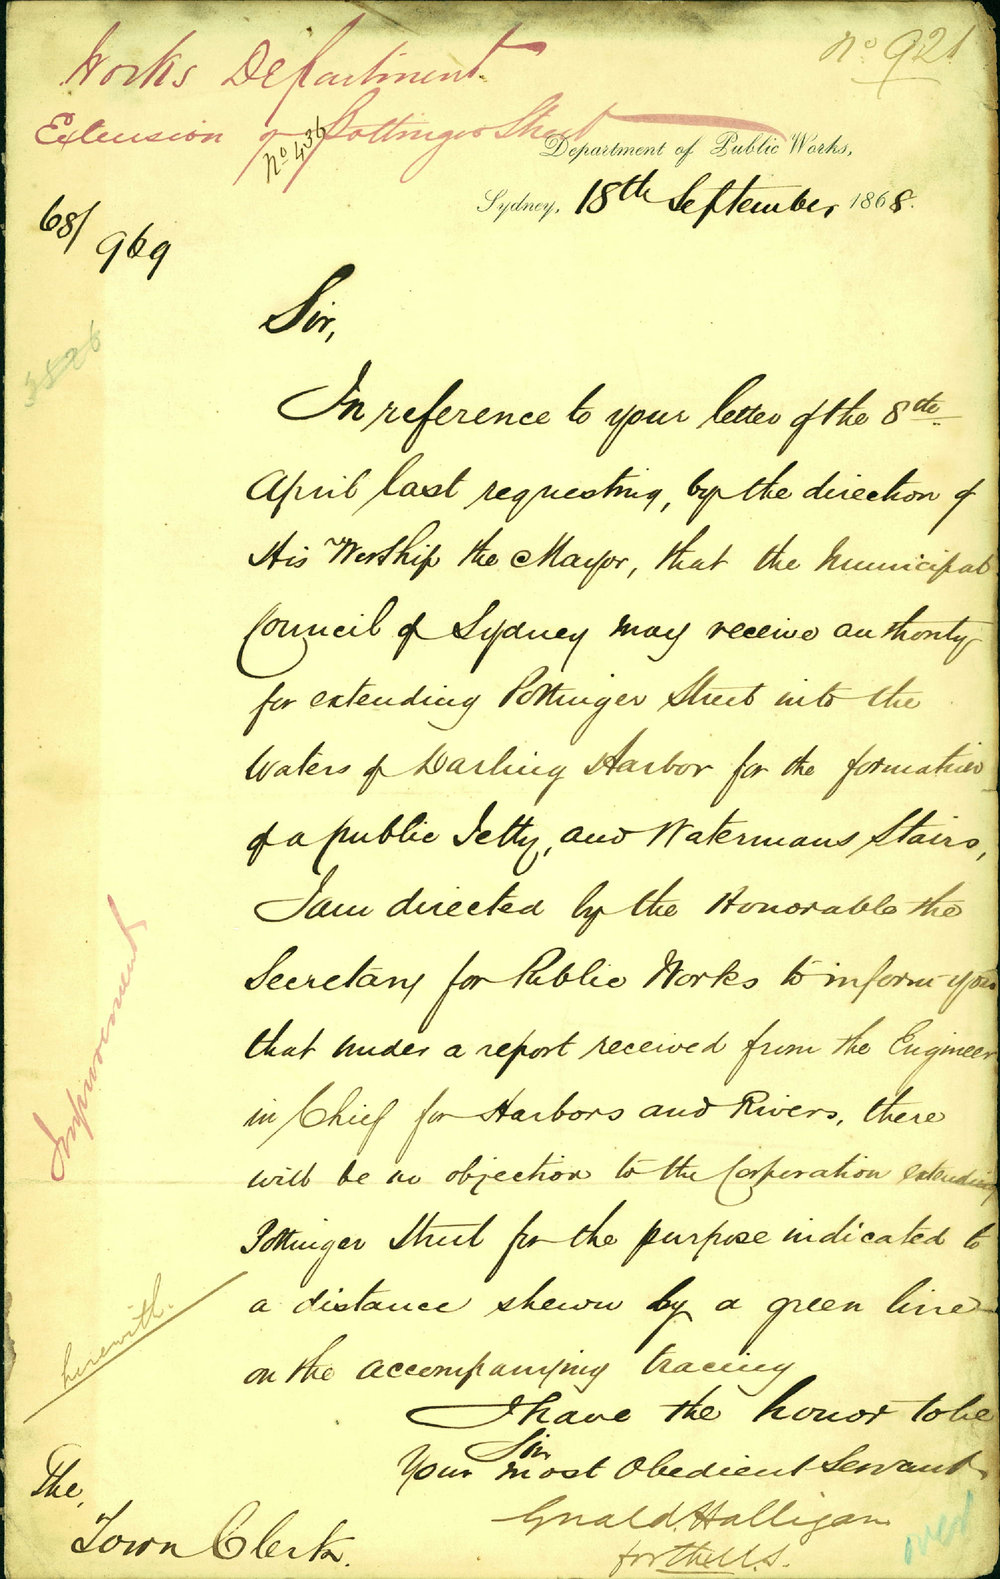 No 921
Works Department
Extension of Pottinger Street
No 436
Department of Public Works,
Sydney, 18th September, 1868.
68/969
Sir,
In reference to your letter of the 8th
April last requesting, by the direction of
His Worship the Mayor, that the Municipal
Council of Sydney may receive authority
for extending Pottinger Street into the
Waters of Darling Harbor for the formation
of a public Jetty, and Watermans Stairs,
I am directed by the Honorable the
Secretary for Public Works to inform you
that under a report received from the Engineer
in Chief for Harbors and Rivers, there
will be no objection to the Corporation extending
Pottinger Street for the purpose indicated to
a distance shewn by a green line
on the accompanying tracing
Improvement
herewith.
I have the honor to be
Sir
Your most Obedient Servant
Gerald Halligan
for the U.S.
The,
Town Clerk.
over